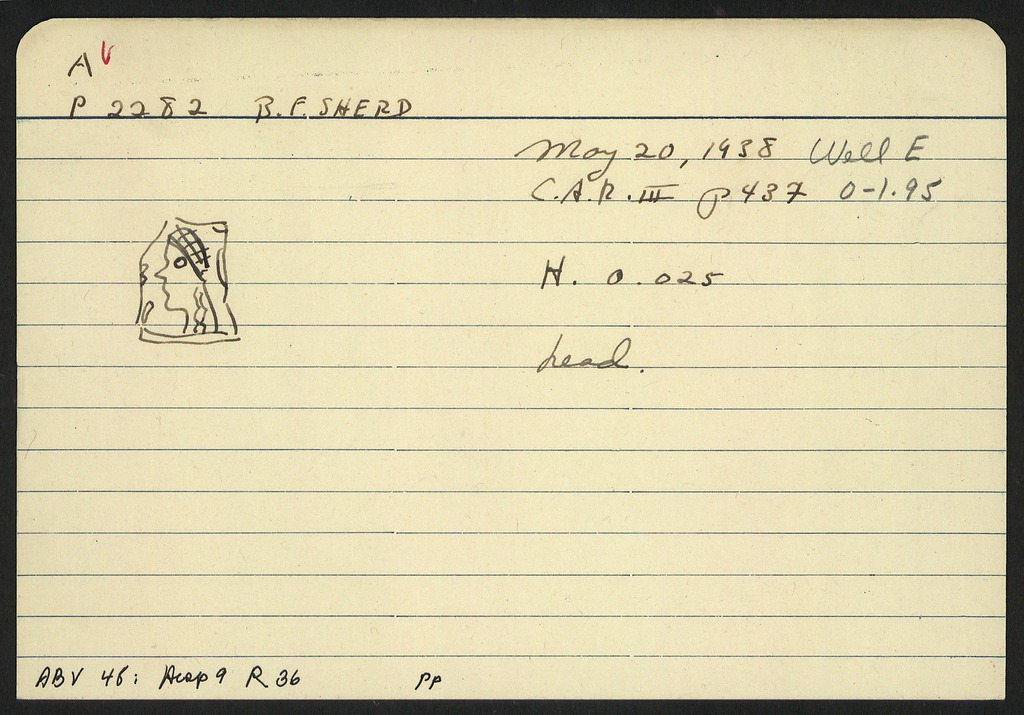 A V
P 2282 B.F. SHERD
May 20, 1938 Well E
C.A.R. III p 437 0-1.95
H. 0.025
head.
ABV 46: R 36 PP